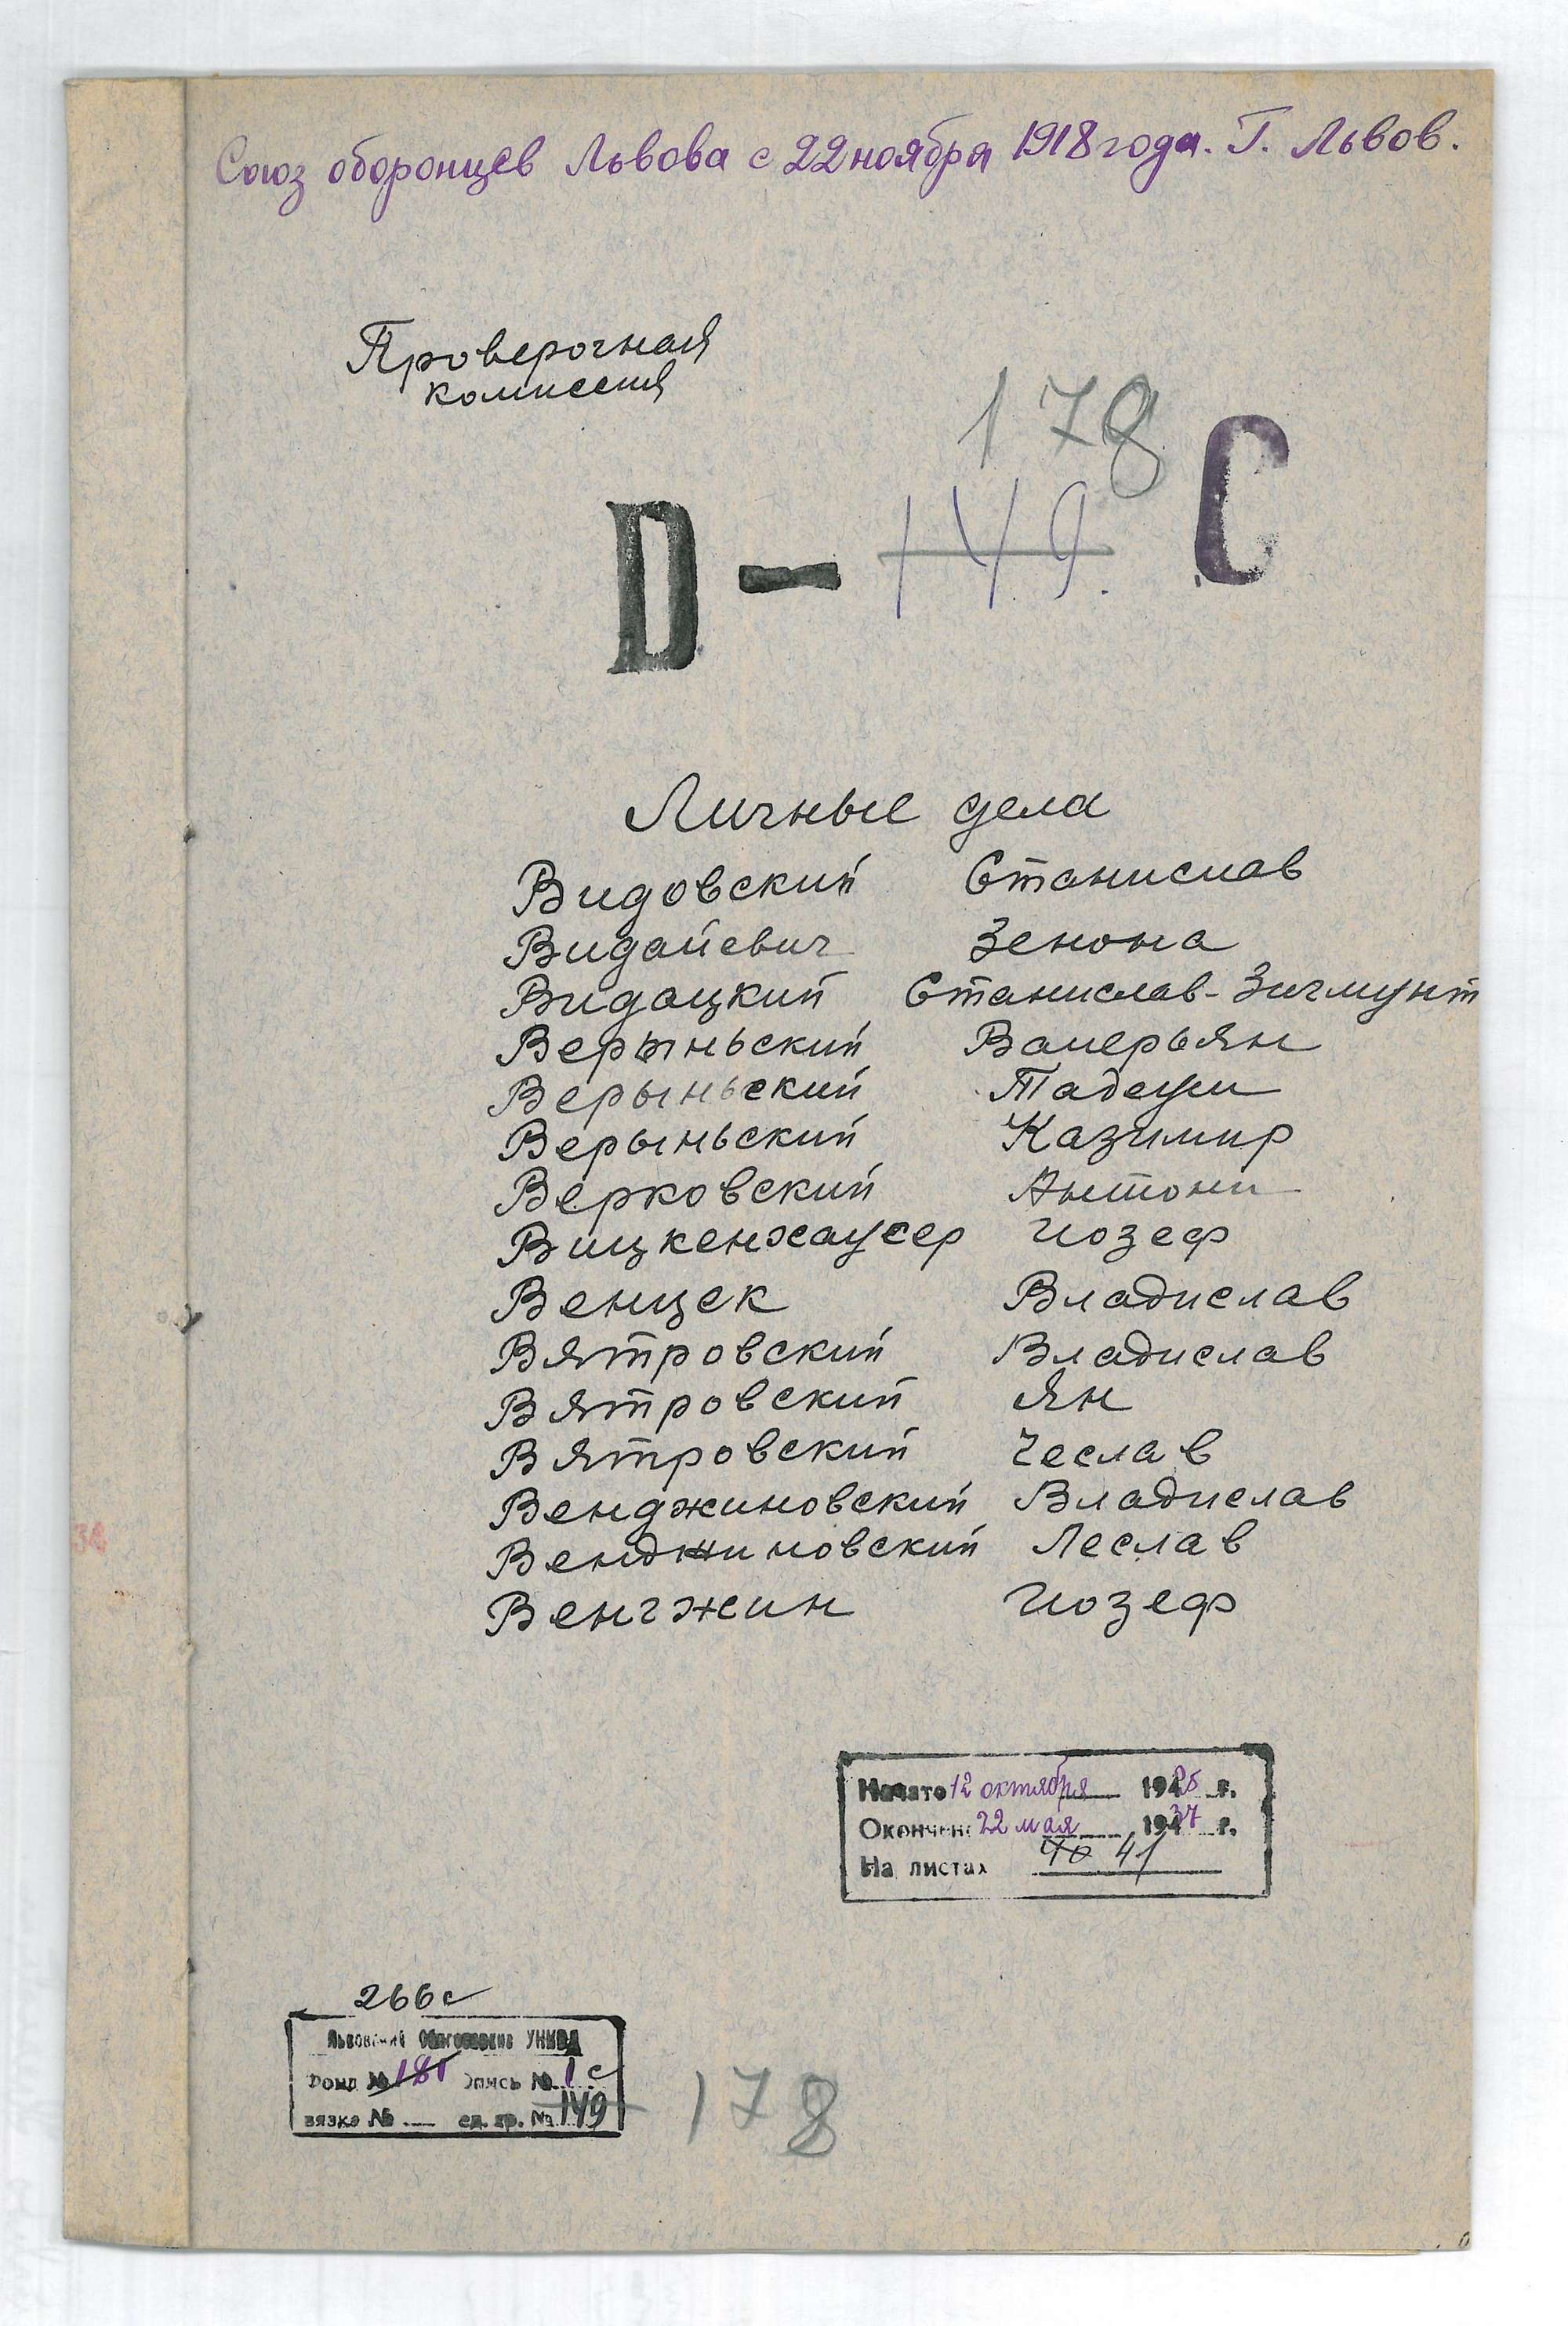 Союз оборонцев Львова с 22 ноября 1918 года. Г. Львов.
Проверочная
комиссия
178
D — 149. С
Личные дела
Видовский Станислав
Видайевич Зенона
Видацкий Станислав-Зигмунт
Верыньский Валерьян
Верыньский Тадеуш
Верыньский Казимир
Верковский Антони
Вицкенхаусер Иозеф
Венцек Владислав
Вятровский Владислав
Вятровский Ян
Вятровский Чеслав
Венджиновский Владислав
Венджиновский Леслав
Венгжин Иозеф
Начато 12 октября 19 г.
Окончен 22 мая 1937 г.
На листах 40 41
266с
Львовский УНКВД
Фонд № Опись № 1 с
вязка № — ед. хр. № 149
178